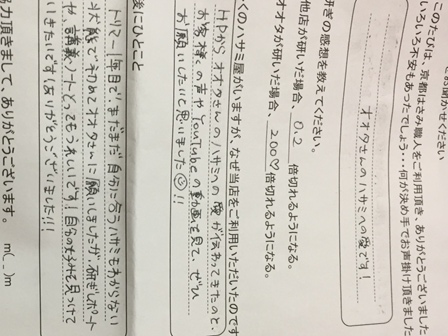 お聞かせください
このたびは、京都はさみ職人をご利用頂き、ありがとうございまし
いろいろ不安もあったでしょう・・・何が決め手でお声掛け頂きました
オオタさんのハサミへの愛です！
研ぎの感想を教えてください。
他店が研いだ場合、 0.2 倍切れるようになる。
オオタが研いだ場合、 200♡倍切れるようになる。
くのハサミ屋がありますが、なぜ当店をご利用いただいたのです
HPからオオタさんのハサミへの愛が伝わってきたのと、
お客様の声やYouTubeの動画を見て、ぜひ
お願いしたいと思いました☺!!
後にひとこと
トリマー1年目で、まだまだ自分に合うハサミもわからない
状態で初めてオオタさんに願いしましたが、研ぎレポート
や、講義ノートとってもうれしいです！自分の好みを見つけて
いきたいです！ありがとうございました!!!
力頂きまして、ありがとうございます。 m(_)m